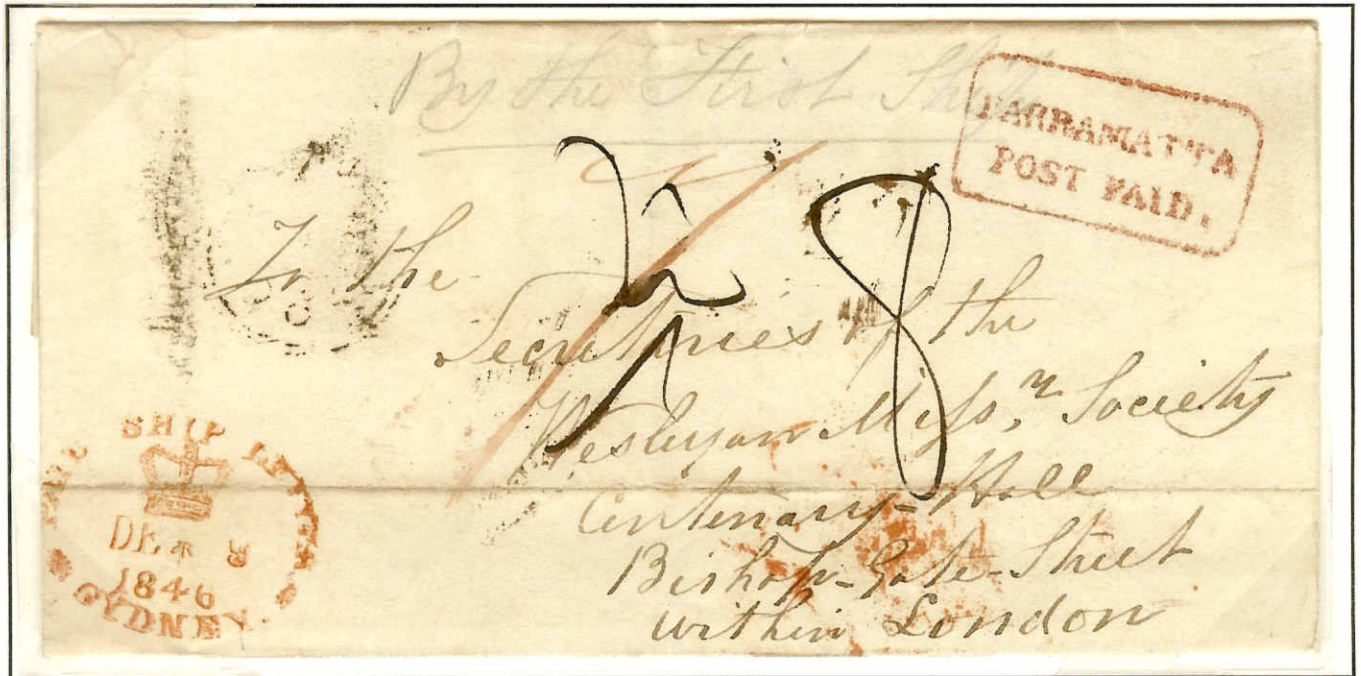 By the First Ship
PARRAMATTA
POST PAID.
8
To the
Secretaries of the
Wesleyan Missy. Society
Centenary-Hall
Bishop-Gate-Street
within London
PAID SHIP LETTER
DE * 8
1846
SYDNEY